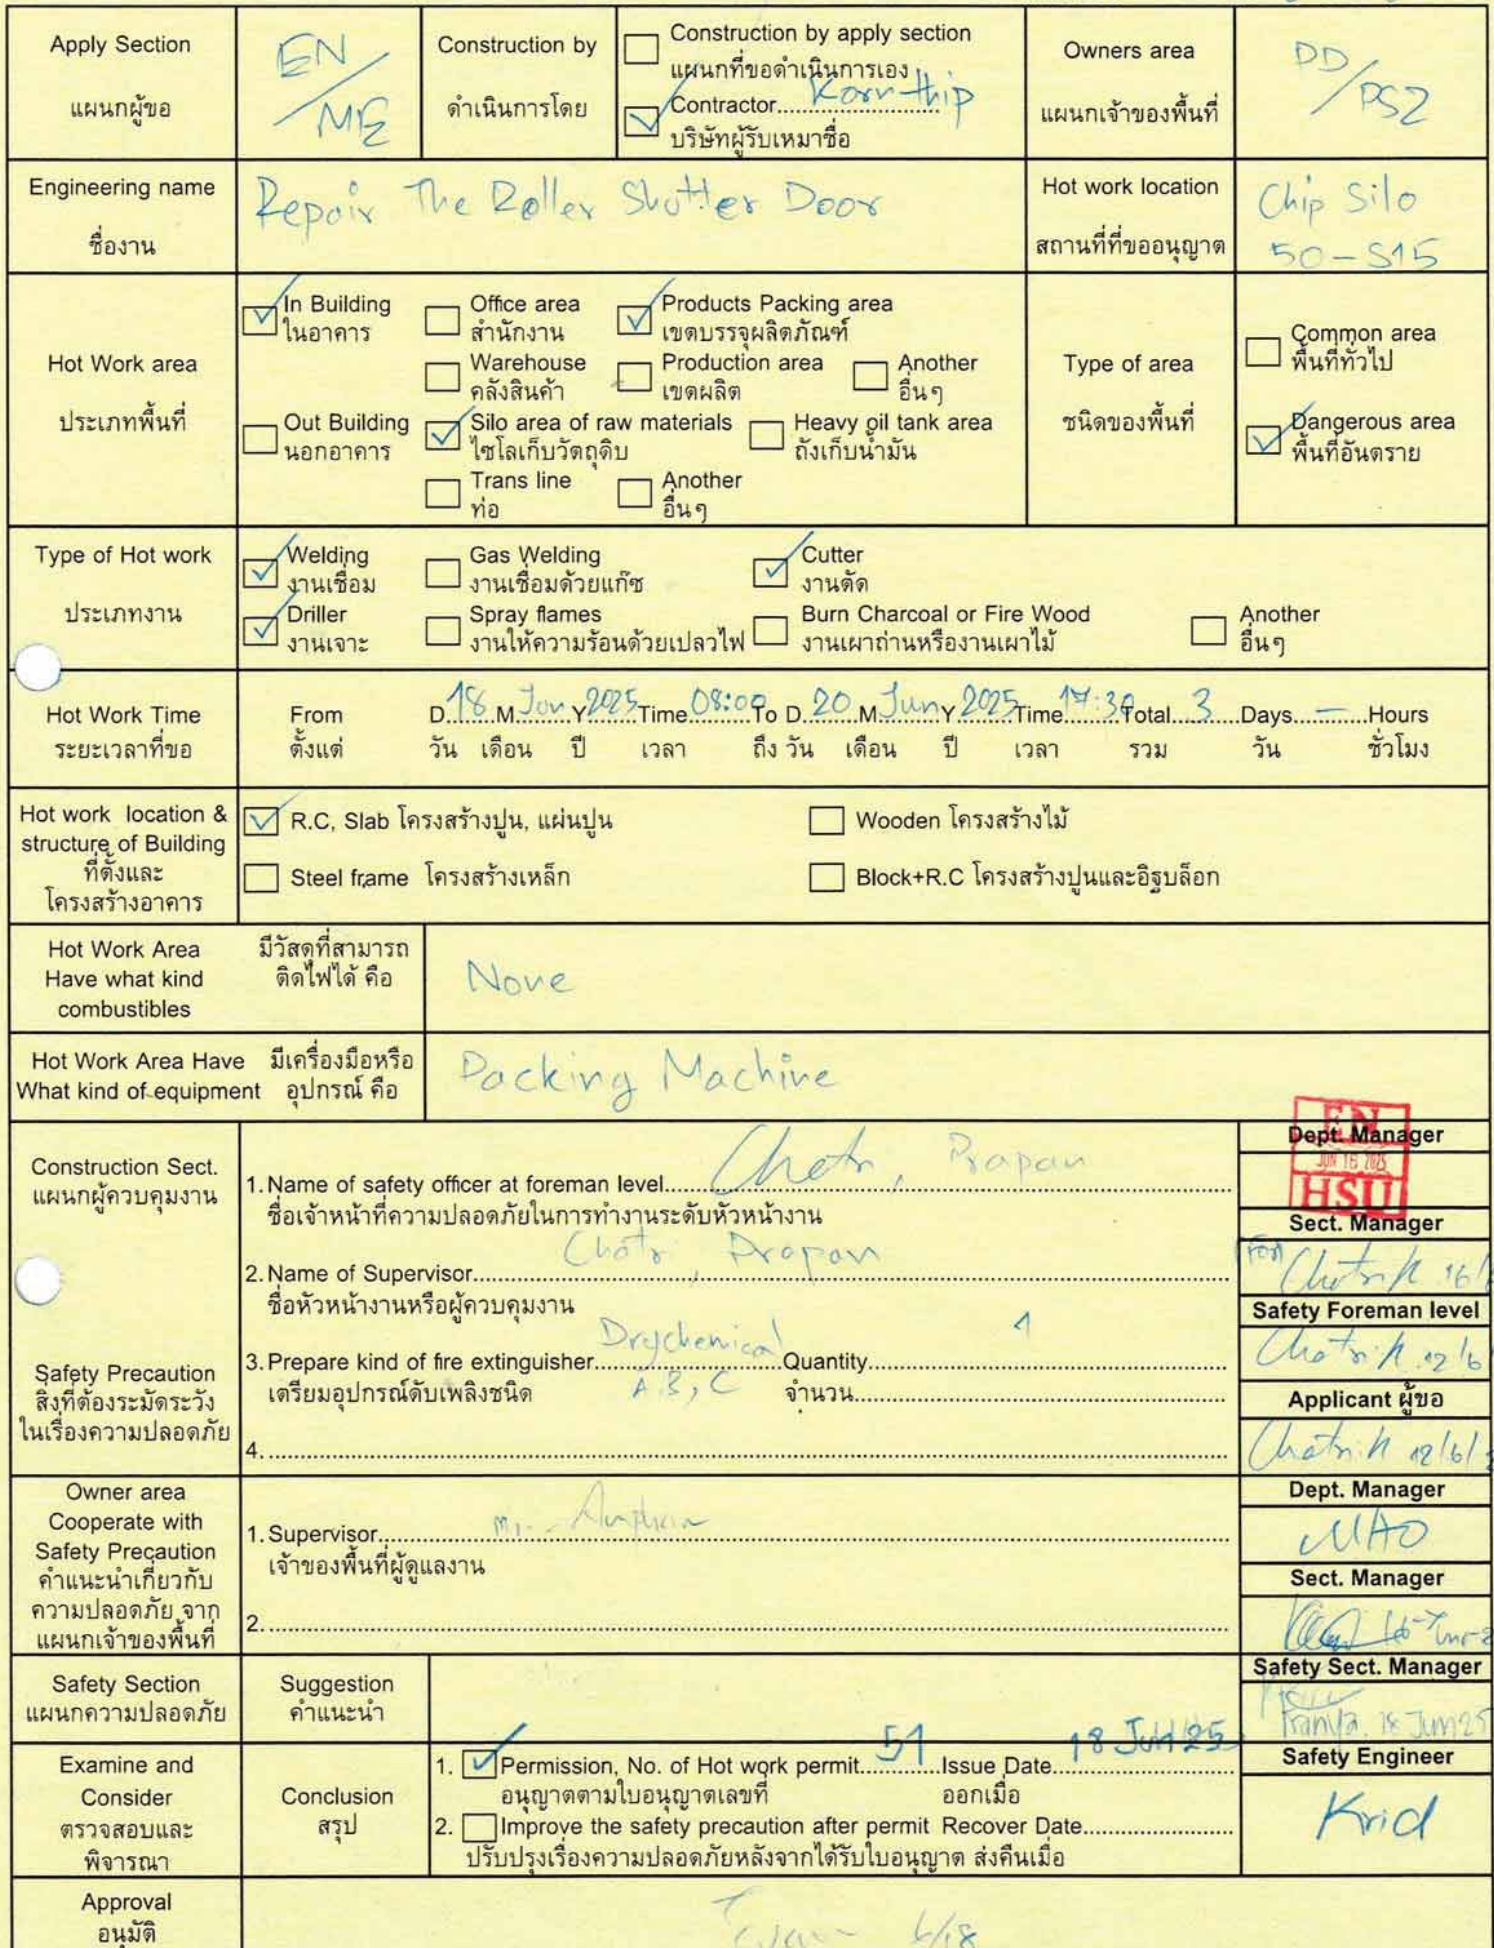 Apply Section
แผนกผู้ขอ
EN/ME
Construction by
ดำเนินการโดย
Construction by apply section
แผนกที่ขอดำเนินการเอง
Contractor Kornthip
บริษัทผู้รับเหมาชื่อ
Owners area
แผนกเจ้าของพื้นที่
DD/PS2
Engineering name
ชื่องาน
Repair The Roller Shutter Door
Hot work location
สถานที่ที่ขออนุญาต
Chip Silo
50-S15
Hot Work area
ประเภทพื้นที่
In Building Office area Products Packing area
ในอาคาร สำนักงาน เขตบรรจุผลิตภัณฑ์
Warehouse Production area Another
คลังสินค้า เขตผลิต อื่นๆ
Out Building Silo area of raw materials Heavy oil tank area
นอกอาคาร ไซโลเก็บวัตถุดิบ ถังเก็บน้ำมัน
Trans line Another
ท่อ อื่นๆ
Type of area
ชนิดของพื้นที่
Common area
พื้นที่ทั่วไป
Dangerous area
พื้นที่อันตราย
Type of Hot work
ประเภทงาน
Welding Gas Welding Cutter
งานเชื่อม งานเชื่อมด้วยแก๊ซ งานตัด
Driller Spray flames Burn Charcoal or Fire Wood Another
งานเจาะ งานให้ความร้อนด้วยเปลวไฟ งานเผาถ่านหรืองานเผาไม้ อื่นๆ
Hot Work Time
ระยะเวลาที่ขอ
From D 18 M Jun Y 2025 Time 08:00 To D 20 M Jun Y 2025 Time 17:30 Total 3 Days - Hours
ตั้งแต่ วัน เดือน ปี เวลา ถึง วัน เดือน ปี เวลา รวม วัน ชั่วโมง
Hot work location &
structure of Building
ที่ตั้งและ
โครงสร้างอาคาร
R.C, Slab โครงสร้างปูน, แผ่นปูน Wooden โครงสร้างไม้
Steel frame โครงสร้างเหล็ก Block+R.C โครงสร้างปูนและอิฐบล็อก
Hot Work Area มีวัสดุที่สามารถ
Have what kind ติดไฟได้ คือ
combustibles
None
Hot Work Area Have มีเครื่องมือหรือ
What kind of equipment อุปกรณ์ คือ
Packing Machine
Construction Sect.
แผนกผู้ควบคุมงาน
Safety Precaution
สิ่งที่ต้องระมัดระวัง
ในเรื่องความปลอดภัย
1. Name of safety officer at foreman level Chatr, Prapan
ชื่อเจ้าหน้าที่ความปลอดภัยในการทำงานระดับหัวหน้างาน
2. Name of Supervisor Chatr, Prapan
ชื่อหัวหน้างานหรือผู้ควบคุมงาน
3. Prepare kind of fire extinguisher Drychemical Quantity 1
เตรียมอุปกรณ์ดับเพลิงชนิด A,B,C จำนวน
4.
Dept. Manager
EN
JUN 16 2025
HSU
Sect. Manager
(For) Chatri K 16/
Safety Foreman level
Chatri K 12/6
Applicant ผู้ขอ
Chatri K 12/6/
Owner area
Cooperate with
Safety Precaution
คำแนะนำเกี่ยวกับ
ความปลอดภัย จาก
แผนกเจ้าของพื้นที่
1. Supervisor
เจ้าของพื้นที่ผู้ดูแลงาน
2.
Dept. Manager
MAO
Sect. Manager
Safety Section
แผนกความปลอดภัย
Suggestion
คำแนะนำ
Safety Sect. Manager
18 Jun 25
Examine and
Consider
ตรวจสอบและ
พิจารณา
Conclusion
สรุป
1. Permission, No. of Hot work permit 51 Issue Date 18 Jun 25
อนุญาตตามใบอนุญาตเลขที่ ออกเมื่อ
2. Improve the safety precaution after permit Recover Date
ปรับปรุงเรื่องความปลอดภัยหลังจากได้รับใบอนุญาต ส่งคืนเมื่อ
Safety Engineer
Krid
Approval
อนุมัติ
6/18